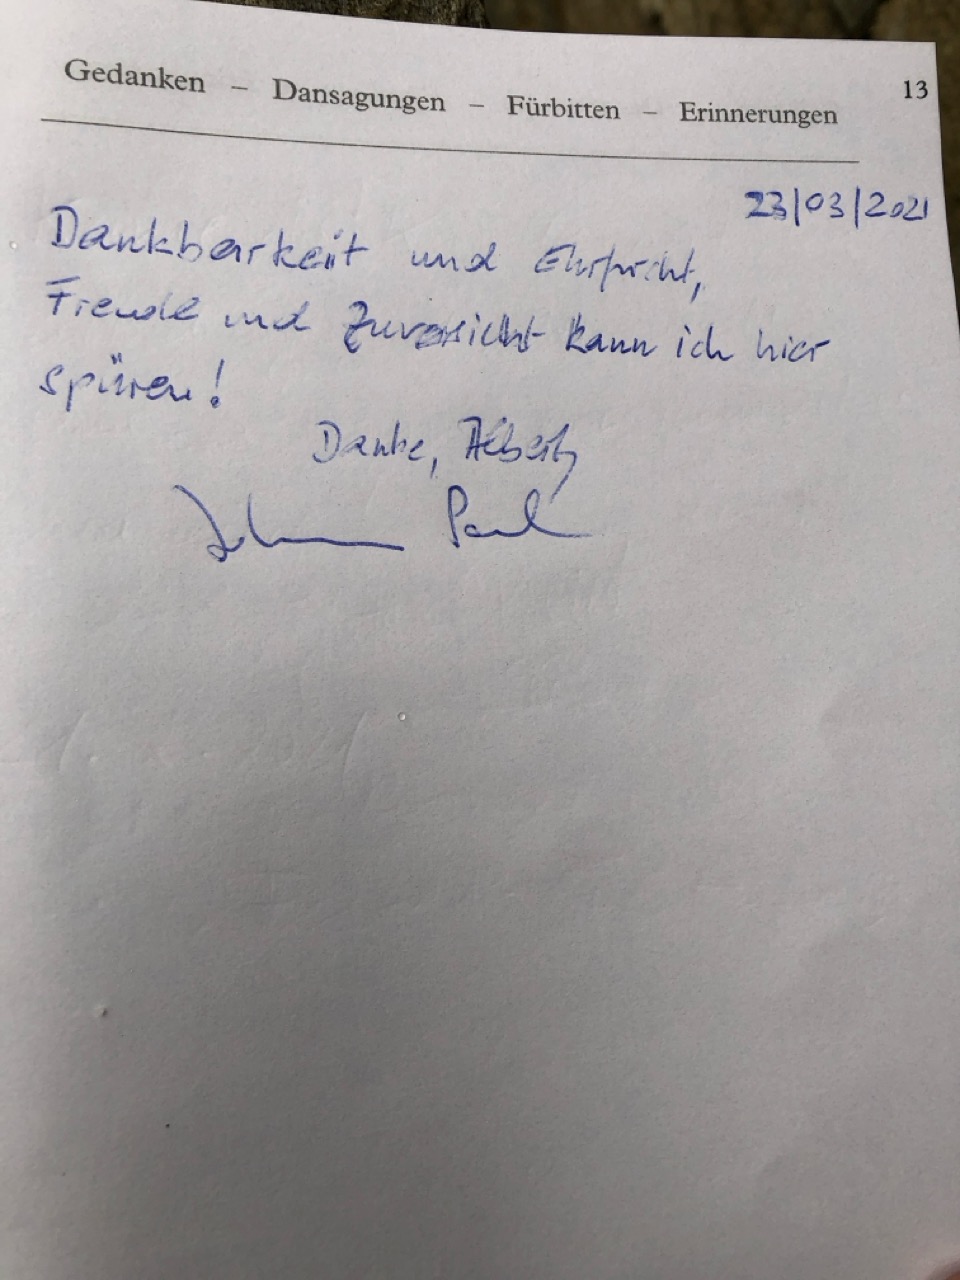 Gedanken – Dansagungen – Fürbitten – Erinnerungen
13
23/03/2021
Dankbarkeit und Ehrfurcht,
Freude und Zuversicht kann ich hier
spüren!
Danke, Albert,
Paul